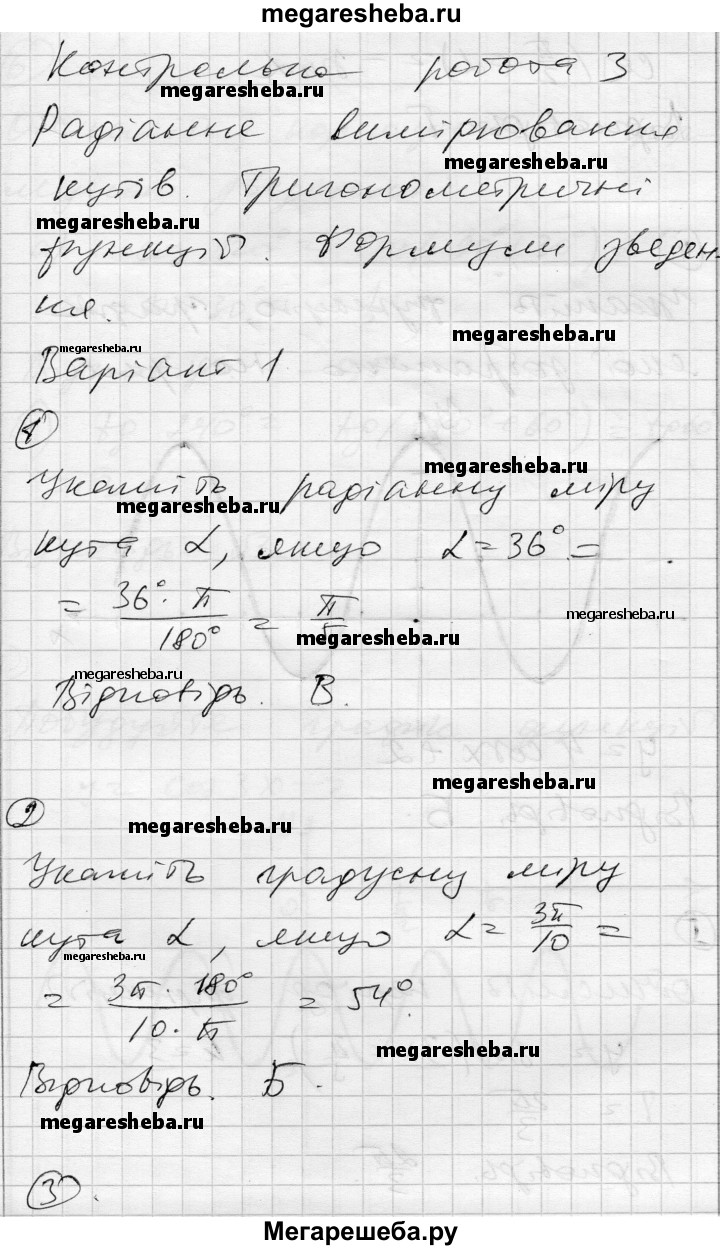 megaresheba.ru
Контрольна робота 3
megaresheba.ru
Радіанне вимірювання
megaresheba.ru
кутів. Тригонометричні
megaresheba.ru
функції. Формули зведен-
ня.
megaresheba.ru
megaresheba.ru
Варіант 1
1
megaresheba.ru
Укажіть радіанну міру
megaresheba.ru
кута α, якщо α = 36° =
= 36° · π / 180° = π/5
megaresheba.ru
megaresheba.ru
megaresheba.ru
Відповідь. В.
megaresheba.ru
2
megaresheba.ru
Укажіть градусну міру
кута α, якщо α = 3π/10 =
megaresheba.ru
= 3π · 180° / 10 · π = 54°.
megaresheba.ru
Відповідь. Б.
megaresheba.ru
3.
Мегарешеба.ру